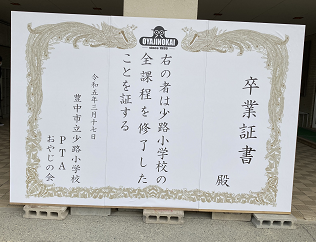 OYAJINOKAI
卒業証書
殿
右の者は少路小学校の
全課程を修了した
ことを証する
令和五年三月十七日
豊中市立少路小学校
PTA
おやじの会